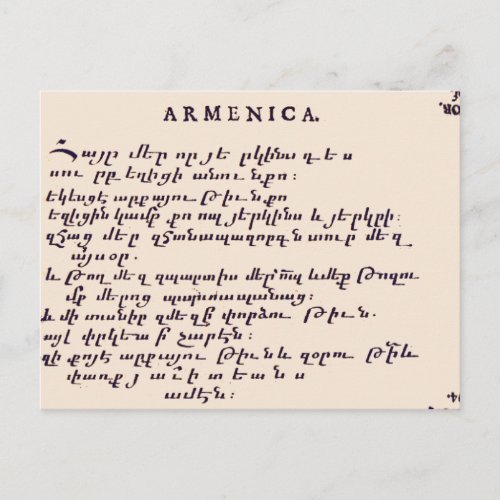 ARMENICA.
Հայր մեր որ յե րկինս դ ե ս
սու րբ եղիցի անու ն քո :
եկեսցէ արքայու թիւն քո
եղիցին կամք քո որպ յերկինս և յերկրի :
զհաց մեր զհանապազորդն տուր մե զ
այսօր .
և թող մե զ զպարտիս մեր որպ և մեք թողու
մք մերոց պարտապանաց :
և մի տանիր զմեզ ի փորձու թիւն .
այլ փրկեա ի չարէն :
զի քոյ է արքայու թիւն և զօրու թիւն և
փառք յ ա ւ ի տ ե ա ն ս
ամէն :
OR.